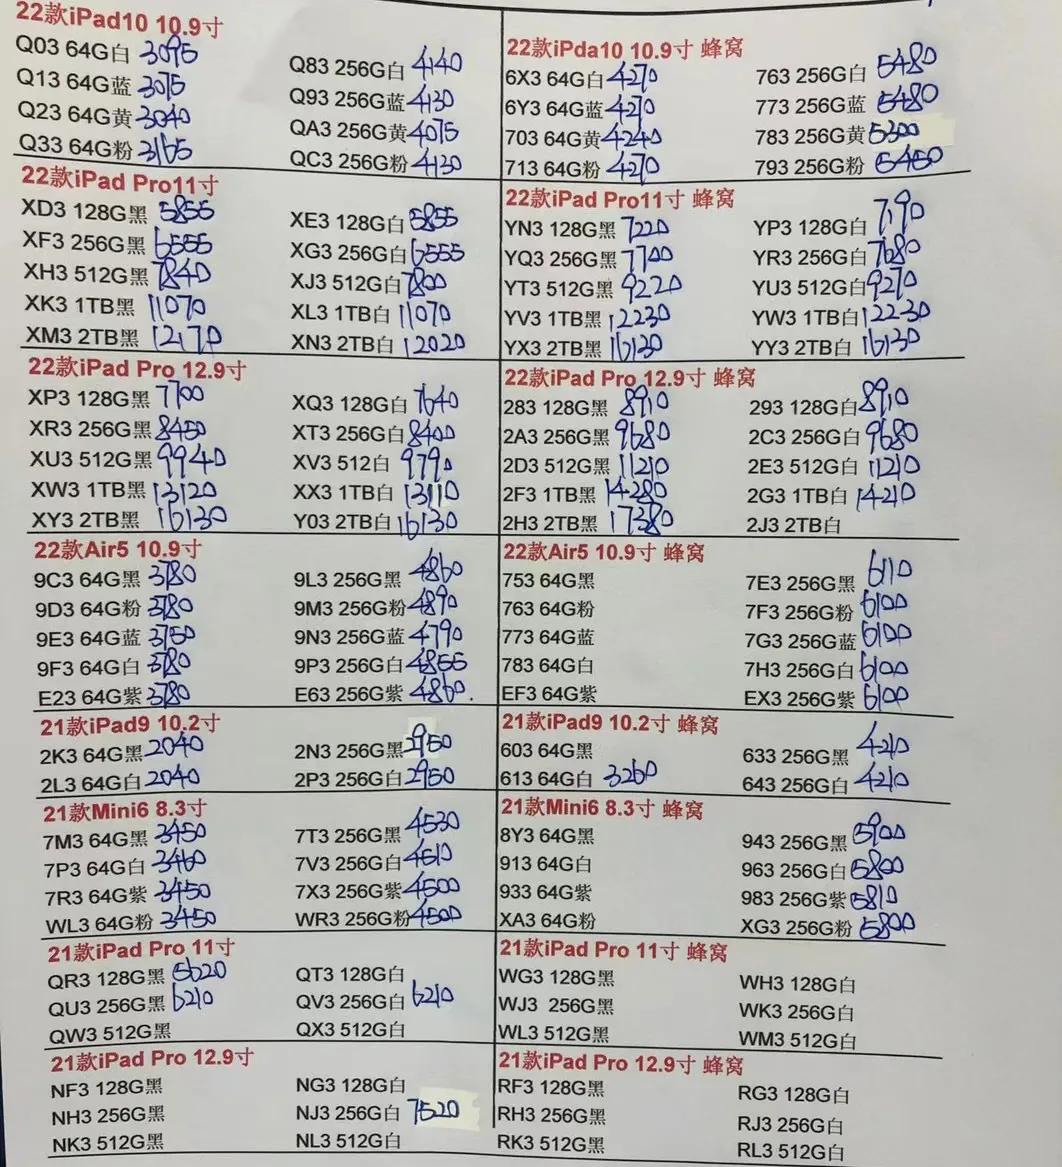 22款iPad10 10.9寸
Q03 64G白 3095
Q83 256G白 4140
Q13 64G蓝 3075
Q93 256G蓝 4130
Q23 64G黄 3040
QA3 256G黄 4075
Q33 64G粉 3165
QC3 256G粉 4130
22款iPda10 10.9寸 蜂窝
6X3 64G白 4270
763 256G白 5480
6Y3 64G蓝 4270
773 256G蓝 5480
703 64G黄 4240
783 256G黄 5300
713 64G粉 4270
793 256G粉 5450
22款iPad Pro11寸
XD3 128G黑 5855
XE3 128G白 5855
XF3 256G黑 6555
XG3 256G白 6555
XH3 512G黑 7840
XJ3 512G白 7800
XK3 1TB黑 11070
XL3 1TB白 11070
XM3 2TB黑 12170
XN3 2TB白 12020
22款iPad Pro11寸 蜂窝
YN3 128G黑 7220
YP3 128G白 7190
YQ3 256G黑 7700
YR3 256G白 7680
YT3 512G黑 9220
YU3 512G白 9270
YV3 1TB黑 12230
YW3 1TB白 12230
YX3 2TB黑 16130
YY3 2TB白 16130
22款iPad Pro 12.9寸
XP3 128G黑 7700
XQ3 128G白 7640
XR3 256G黑 8450
XT3 256G白 8400
XU3 512G黑 9940
XV3 512白 9790
XW3 1TB黑 13120
XX3 1TB白 13110
XY3 2TB黑 16130
Y03 2TB白 16130
22款iPad Pro 12.9寸 蜂窝
283 128G黑 8910
293 128G白 8910
2A3 256G黑 9680
2C3 256G白 9680
2D3 512G黑 11210
2E3 512G白 11210
2F3 1TB黑 14280
2G3 1TB白 14210
2H3 2TB黑 17380
2J3 2TB白
22款Air5 10.9寸
9C3 64G黑 3780
9L3 256G黑 4860
9D3 64G粉 3780
9M3 256G粉 4890
9E3 64G蓝 3750
9N3 256G蓝 4790
9F3 64G白 3780
9P3 256G白 4855
E23 64G紫 3780
E63 256G紫 4860.
22款Air5 10.9寸 蜂窝
753 64G黑
7E3 256G黑 6110
763 64G粉
7F3 256G粉 6100
773 64G蓝
7G3 256G蓝 6100
783 64G白
7H3 256G白 6100
EF3 64G紫
EX3 256G紫 6100
21款iPad9 10.2寸
2K3 64G黑 2040
2N3 256G黑 2950
2L3 64G白 2040
2P3 256G白 2950
21款iPad9 10.2寸 蜂窝
603 64G黑
633 256G黑 4210
613 64G白 3260
643 256G白 4210
21款Mini6 8.3寸
7M3 64G黑 3450
7T3 256G黑 4530
7P3 64G白 3460
7V3 256G白 4510
7R3 64G紫 3450
7X3 256G紫 4500
WL3 64G粉 3450
WR3 256G粉 4500
21款Mini6 8.3寸 蜂窝
8Y3 64G黑
943 256G黑 5900
913 64G白
963 256G白 5800
933 64G紫
983 256G紫 5810
XA3 64G粉
XG3 256G粉 5800
21款iPad Pro 11寸
QR3 128G黑 5620
QT3 128G白
QU3 256G黑 6210
QV3 256G白 6210
QW3 512G黑
QX3 512G白
21款iPad Pro 11寸 蜂窝
WG3 128G黑
WH3 128G白
WJ3 256G黑
WK3 256G白
WL3 512G黑
WM3 512G白
21款iPad Pro 12.9寸
NF3 128G黑
NG3 128G白
NH3 256G黑
NJ3 256G白 7520
NK3 512G黑
NL3 512G白
21款iPad Pro 12.9寸 蜂窝
RF3 128G黑
RG3 128G白
RH3 256G黑
RJ3 256G白
RK3 512G黑
RL3 512G白